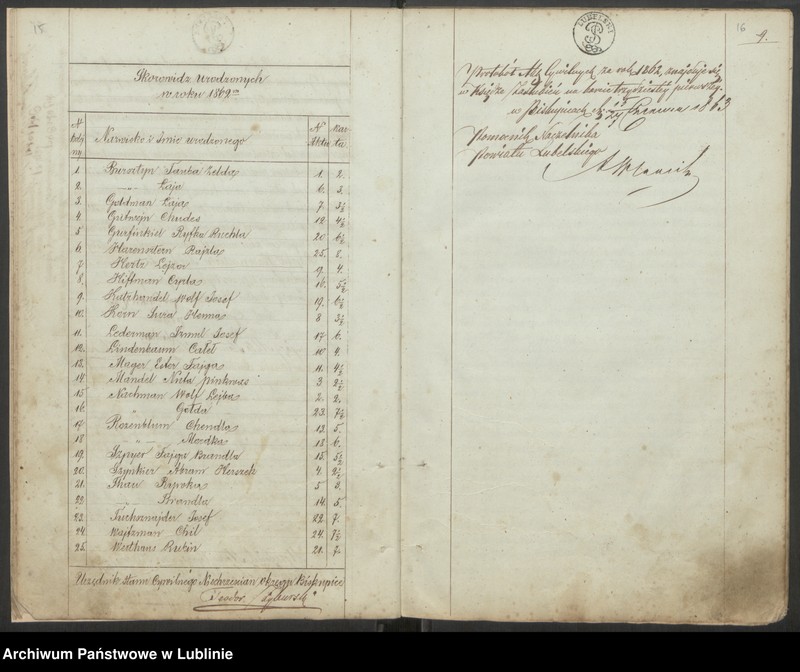 15
Skorowidz Urodzonych
w roku 1862
N
Nazwisko i Imie urodzonego
N Aktu
Kar-ta
1. Bursztyn Tauba Zelda 1 2.
2. " Łaja 6. 3.
3. Goldman Łaja 7. 3½
4. Gutwajn Chudes 12. 4½
5 Gurfinkiel Ryfka Ruchla 20. 6½
6. Hazensztern Rajzla 25. 8.
7. Hertz Lejzor 9. 4.
8. Hiffman Cypa 16. 5½
9. Kutzhandel Wolf Josef 19. 6½
10. Korn Sura Henna 8 3½
11. Lederman Josef 17. 6.
12. Lindenbaum 10 4.
13. Mayer Ester Fajga 11. 4½
14. Mandel Pinkwas 3 2½
15 Nachman Wolf Lejba 2. 2.
16. " Gołda 23. 7½
17. Rozenblum Chendla 13. 5.
18 " Mordka 18. 6.
19. Szpyer Fajga Brandla 15. 5½
20. Szynkier Abram Herszek 4. 2½
21. 5 3.
22. " Brandla 14. 5.
23. Tuchsznajder Josef 22. 7.
24. Wajtzman Chil 24. 7½
25. Werthans Rubin 21. 7.
Urzędnik Stanu Cywilnego Niechrześcian okręgu Biskupice
Teodor
LUBELSKI
16
9.
Protokół Akt Cywilnych za rok 1862, znajduje się
w książce na karcie trzydziestej pierwszej.
w Biskupicach d. Czerwca 1863
Pomocnik Naczelnika
Powiatu Lubelskiego
Archiwum Państwowe w Lublinie